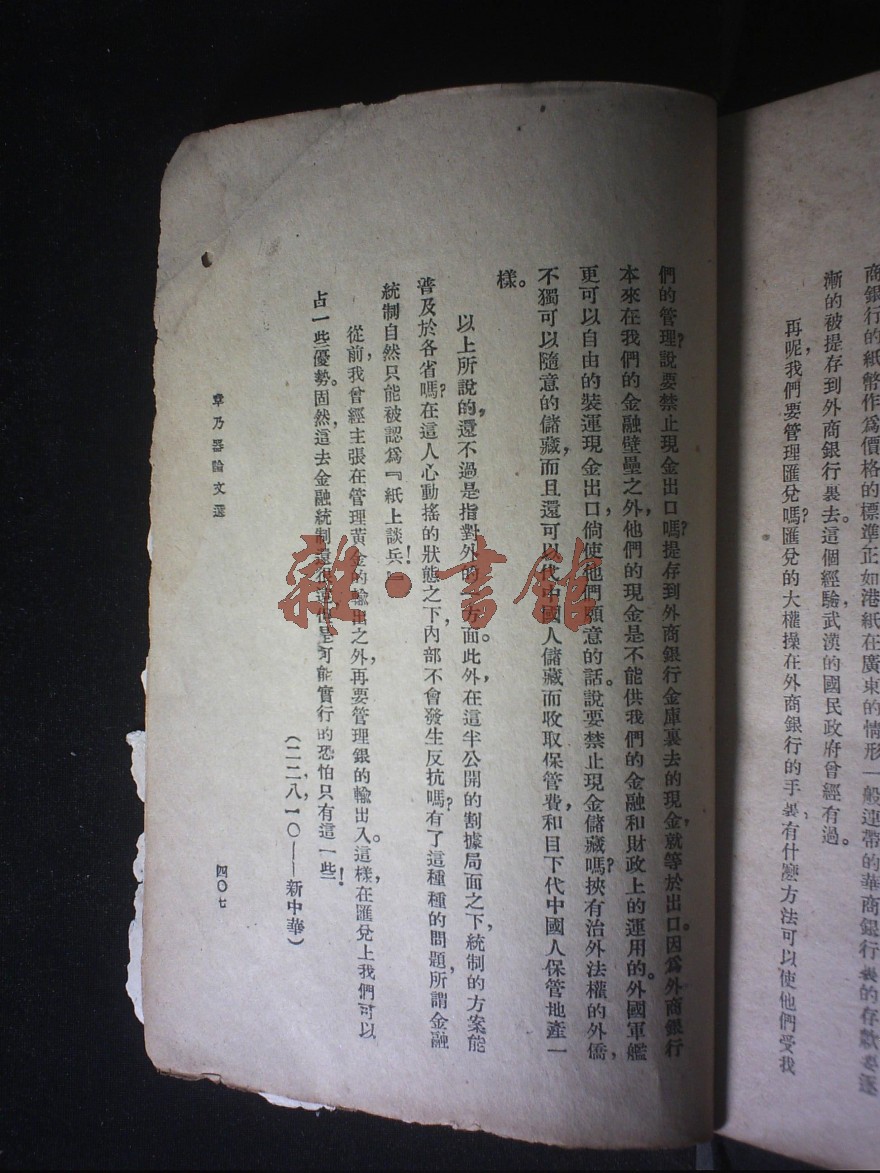 商銀行的紙幣作爲價格的標準正如港紙在廣東的情形一般連帶的華商銀行裏的存款要逐
漸的被提存到外商銀行裏去。這個經驗武漢的國民政府曾經有過。
再呢，我們要管理匯兌嗎？匯兌的大權操在外商銀行的手裏，有什麼方法可以使他們受我
們的管理？說要禁止現金出口嗎？提存到外商銀行金庫裏去的現金，就等於出口。因爲外商銀行
本來在我們的金融壁壘之外，他們的現金是不能供我們的金融和財政上的運用的。外國軍艦
更可以自由的裝運現金出口，倘使他們願意的話。說要禁止現金儲藏嗎？挾有治外法權的外僑，
不獨可以隨意的儲藏，而且還可以代中國人儲藏而收取保管費，和目下代中國人保管地產一
樣。
以上所說的，還不過是指對外的一方面。此外，在這半公開的割據局面之下，統制的方案能
普及於各省嗎？在這人心動搖的狀態之下，內部不會發生反抗嗎？有了這種種的問題，所謂金融
統制自然只能被認爲『紙上談兵！』
從前，我曾經主張在管理黃金的輸出之外，再要管理銀的輸出入。這樣，在匯兌上我們可以
占一些優勢。固然，這去金融統制還很遠，但是可能實行的恐怕只有這一些！
（二二，八，一〇——新中華）
章乃器論文選
四〇七
雜·書館